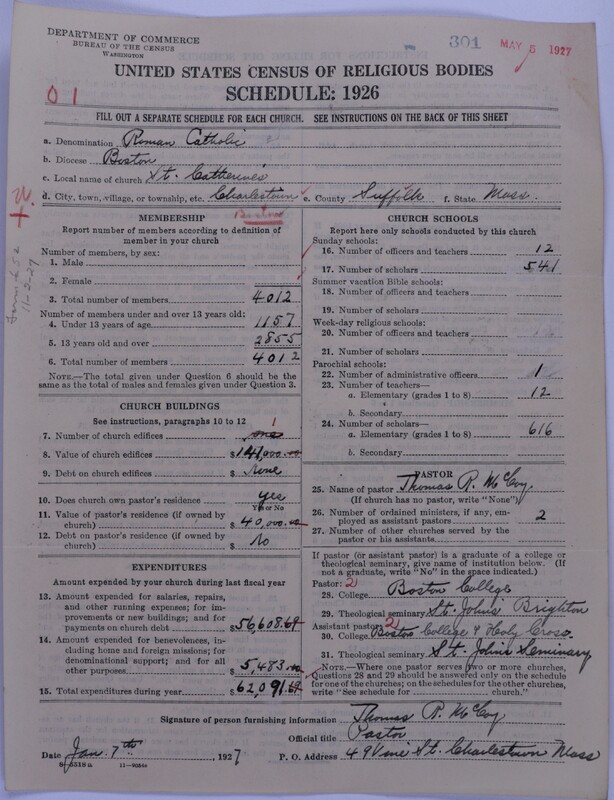 DEPARTMENT OF COMMERCE
BUREAU OF THE CENSUS
WASHINGTON
301
MAY 5 1927
UNITED STATES CENSUS OF RELIGIOUS BODIES
SCHEDULE: 1926
01
FILL OUT A SEPARATE SCHEDULE FOR EACH CHURCH. SEE INSTRUCTIONS ON THE BACK OF THIS SHEET
a. Denomination Roman Catholic
b. Diocese Boston
c. Local name of church St. Catherine's
d. City, town, village, or township, etc. Charlestown e. County Suffolk f. State Mass.
Boston
MEMBERSHIP
Report number of members according to definition of
member in your church
Number of members, by sex:
1. Male
2. Female
3. Total number of members 4012
Number of members under and over 13 years old:
4. Under 13 years of age 1157
5. 13 years old and over 2855
6. Total number of members 4012
NOTE.—The total given under Question 6 should be the
same as the total of males and females given under Question 3.
CHURCH BUILDINGS
See instructions, paragraphs 10 to 12
1
7. Number of church edifices one
8. Value of church edifices $141,000.00
9. Debt on church edifices $ None
10. Does church own pastor's residence Yes
Yes or No
11. Value of pastor's residence (if owned by
church) $40,000.00
12. Debt on pastor's residence (if owned by
church) $ No
EXPENDITURES
Amount expended by your church during last fiscal year
13. Amount expended for salaries, repairs,
and other running expenses; for im-
provements or new buildings; and for
payments on church debt $56,608.69
14. Amount expended for benevolences, in-
cluding home and foreign missions; for
denominational support; and for all
other purposes $5,483.00
15. Total expenditures during year $62,091.69
CHURCH SCHOOLS
Report here only schools conducted by this church
Sunday schools:
16. Number of officers and teachers 12
17. Number of scholars 541
Summer vacation Bible schools:
18. Number of officers and teachers
19. Number of scholars
Week-day religious schools:
20. Number of officers and teachers
21. Number of scholars
Parochial schools:
22. Number of administrative officers 1
23. Number of teachers—
a. Elementary (grades 1 to 8) 12
b. Secondary
24. Number of scholars—
a. Elementary (grades 1 to 8) 616
b. Secondary
PASTOR
25. Name of pastor Thomas R. McCoy
(If church has no pastor, write "None")
26. Number of ordained ministers, if any, em-
ployed as assistant pastors 2
27. Number of other churches served by the
pastor or his assistants
If pastor (or assistant pastor) is a graduate of a college or
theological seminary, give name of institution below. (If
not a graduate, write "No" in the space indicated.)
Pastor: 2
28. College Boston College
29. Theological seminary St. John's Brighton
Assistant pastor: 2
30. College Boston College & Holy Cross
31. Theological seminary St. John's Seminary
NOTE.—Where one pastor serves two or more churches,
Questions 28 and 29 should be answered only on the schedule
for one of the churches; on the schedules for the other churches,
write "See schedule for church."
Signature of person furnishing information Thomas R. McCoy
Official title Pastor
Date Jan. 7th, 1927 P. O. Address 49 Vine St. Charlestown Mass